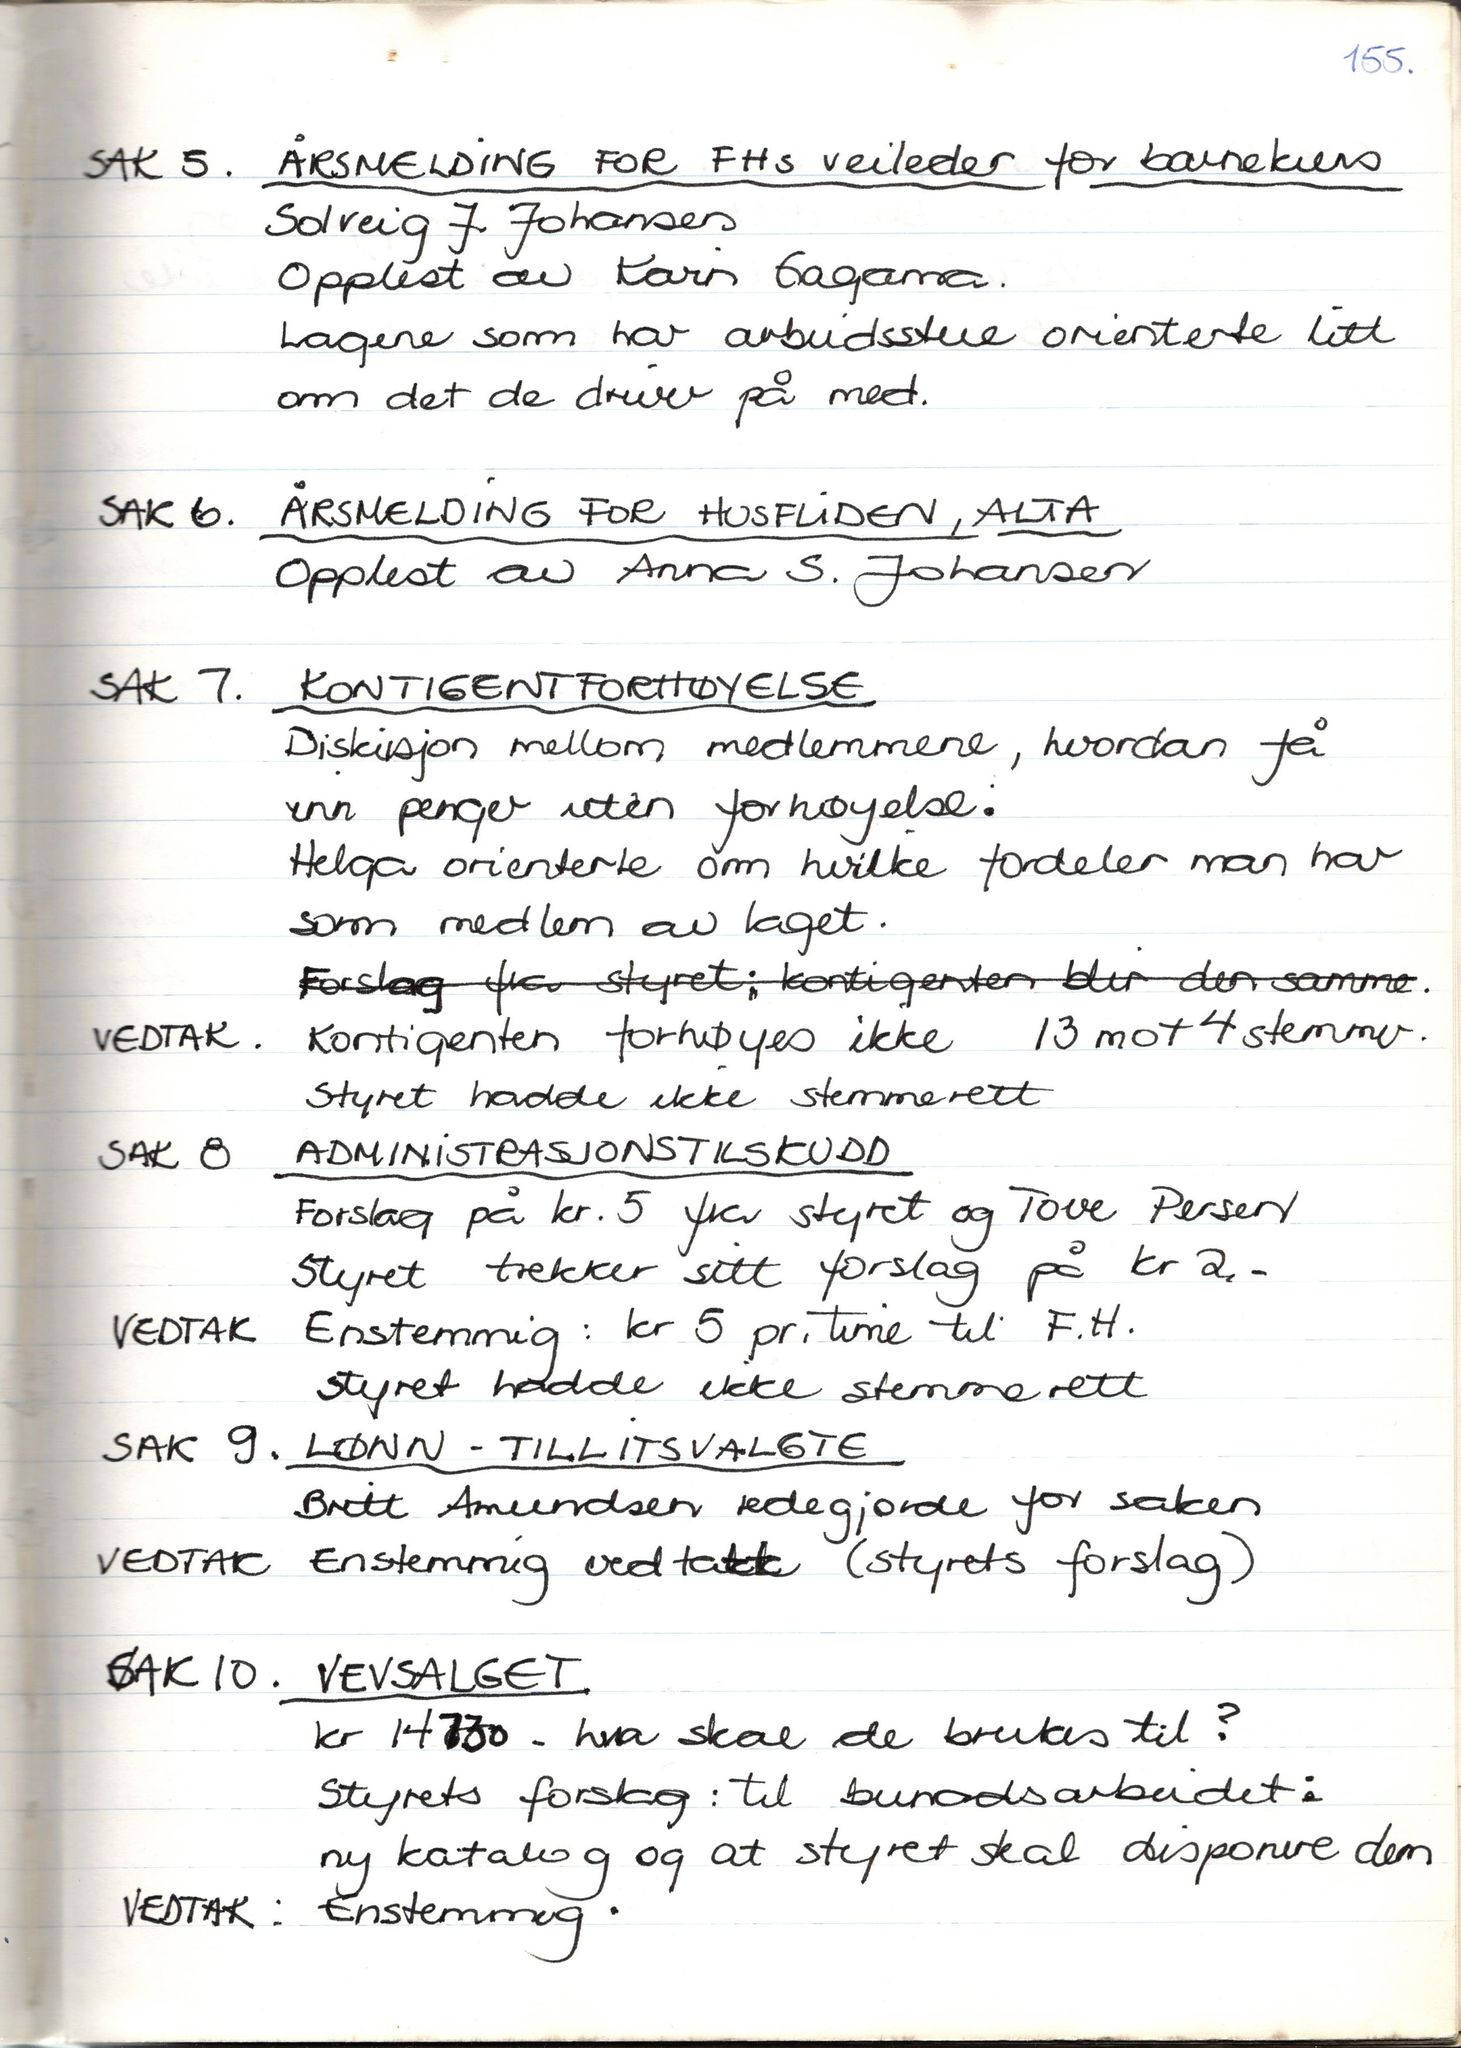 155.
SAK 5. ÅRSMELDING FOR FHs veileder for barnekurs
Solveig J. Johansen
Opplest av Karin Gagama.
Lagene som har arbeidsstue orienterte litt
om det de driver på med.
SAK 6. ÅRSMELDING FOR HUSFLIDEN, ALTA
Opplest av Anna S. Johansen
SAK 7. KONTIGENTFORHØYELSE
Diskusjon mellom medlemmene, hvordan få
inn penger uten forhøyelse.
Helga orienterte om hvilke fordeler man har
som medlem av laget.
Forslag fra styret; kontigenten blir den samme.
VEDTAK. Kontigenten forhøyes ikke 13 mot 4 stemmer.
Styret hadde ikke stemmerett
SAK 8 ADMINISTRASJONSTILSKUDD
Forslag på kr. 5 fra styret og Tove Persen
Styret trekker sitt forslag på kr 2,-
VEDTAK Enstemmig: kr 5 pr. time til F.H.
Styret hadde ikke stemmerett
SAK 9. LØNN - TILLITSVALGTE
Britt Amundsen redegjorde for saken
VEDTAK Enstemmig vedtatt (styrets forslag)
SAK 10. VEVSALGET
kr 14730 - hva skal de brukes til?
Styrets forslag: til bunadsarbeidet:
ny katalog og at styret skal disponere dem
VEDTAK: Enstemmig.